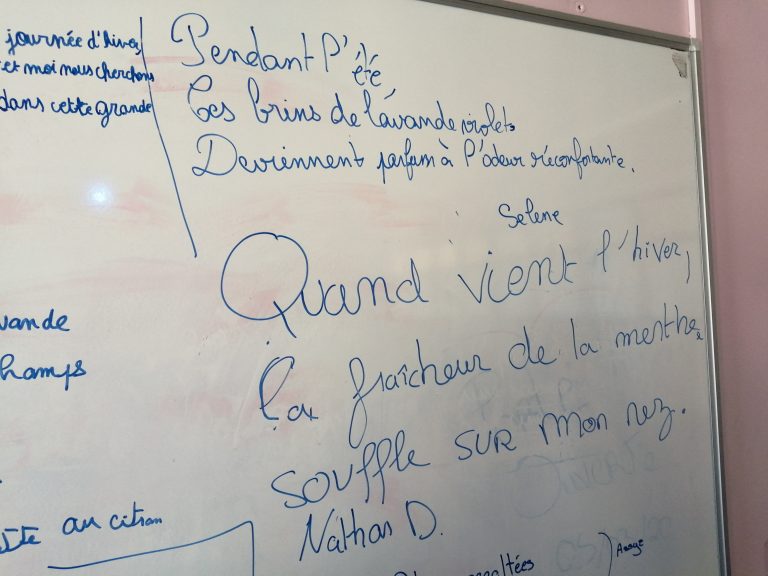 journée d'hiver,
et moi nous cherchons
dans cette grande
Pendant l'été
Ces brins de lavande violets
Deviennent parfum à l'odeur réconfortante.
Selene
Quand vient l'hiver,
La fraîcheur de la menthe
souffle sur mon nez.
Nathan D.
vande
hamps
au citron